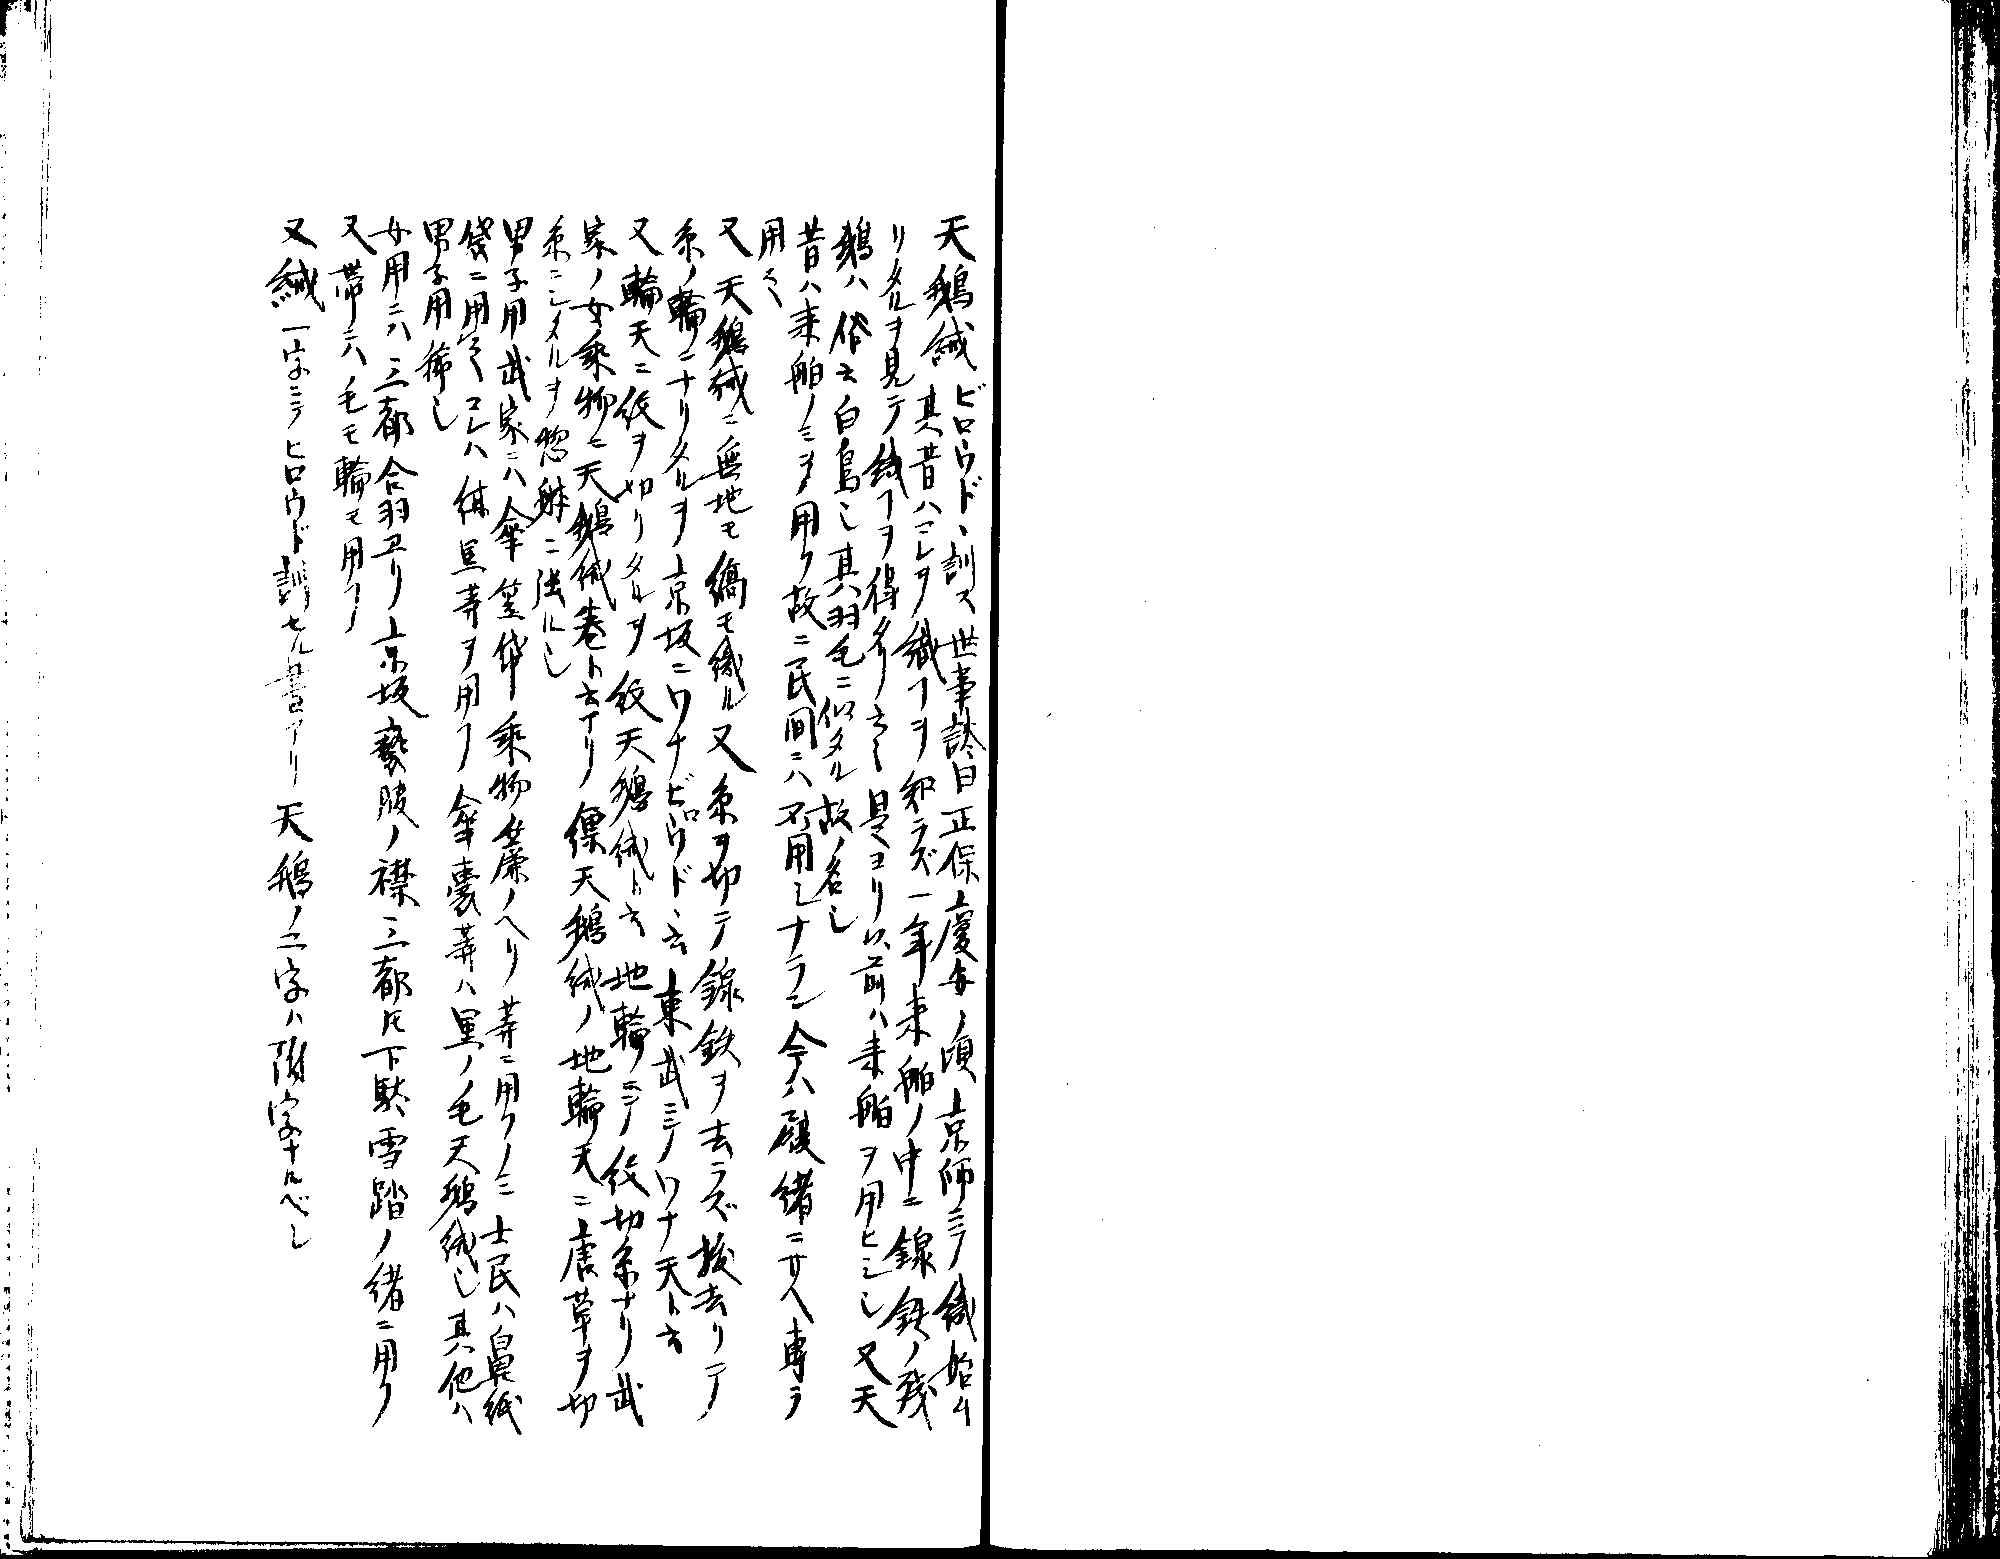 天鵝絨 ビロウドヽ訓ス 世事談曰正保上慶安ノ頃上京師ニテ織始ム
其昔ハコレヲ織フヲ知ラズ一年来舶ノ中ニ線鉄ノ残
リタルヲ見テ織フヲ得タリ云々 是ヨリ以前ハ来舶ヲ用ヒシ也 又天
鵝ハ俗云白鳥也其羽毛ニ似タル故ノ名也
昔ハ来舶ノミヲ用フ故ニ民間ニハ不用シナラン 今ハ履緒ニサヘ専ラ
用之
又天鵝絨ニ無地モ縞モ織ル又糸ヲ切テ線鉄ヲ去ラズ抜去リテ
糸ノ輪ニナリタルヲ上京坂ニワナビロウドヽ云 東武ニテワナ天ト云
又輪天ニ紋ヲ切リタルヲ紋天鵝絨ト云 地輪ノミニテ紋切糸ナリ 武
家ノ女乗物ヲ天鵝絨巻ト云アリ 縹天鵝絨ノ地輪天ニ唐草ヲ切
糸ニシタルヲ惣躰ニ張ル也
男子用武家ニハ傘笠袋乗物簾ノヘリ等ニ用フノミ 士民ハ鼻紙
袋ニ用之 コレハ萌黒等ヲ用フ 傘嚢等ハ黒ノ毛天鵝絨也 其他ハ
男子用稀也
女用ニハ三都合羽ヱリ 上京坂褻服ノ襟ニ三都トモ下駄雪踏ノ緒ニ用フ
又帯ニハ毛モ輪モ用フ
又絨一字ニテヒロウド訓セル書アリ 天鵝ノ二字ハ借字ナルベシ